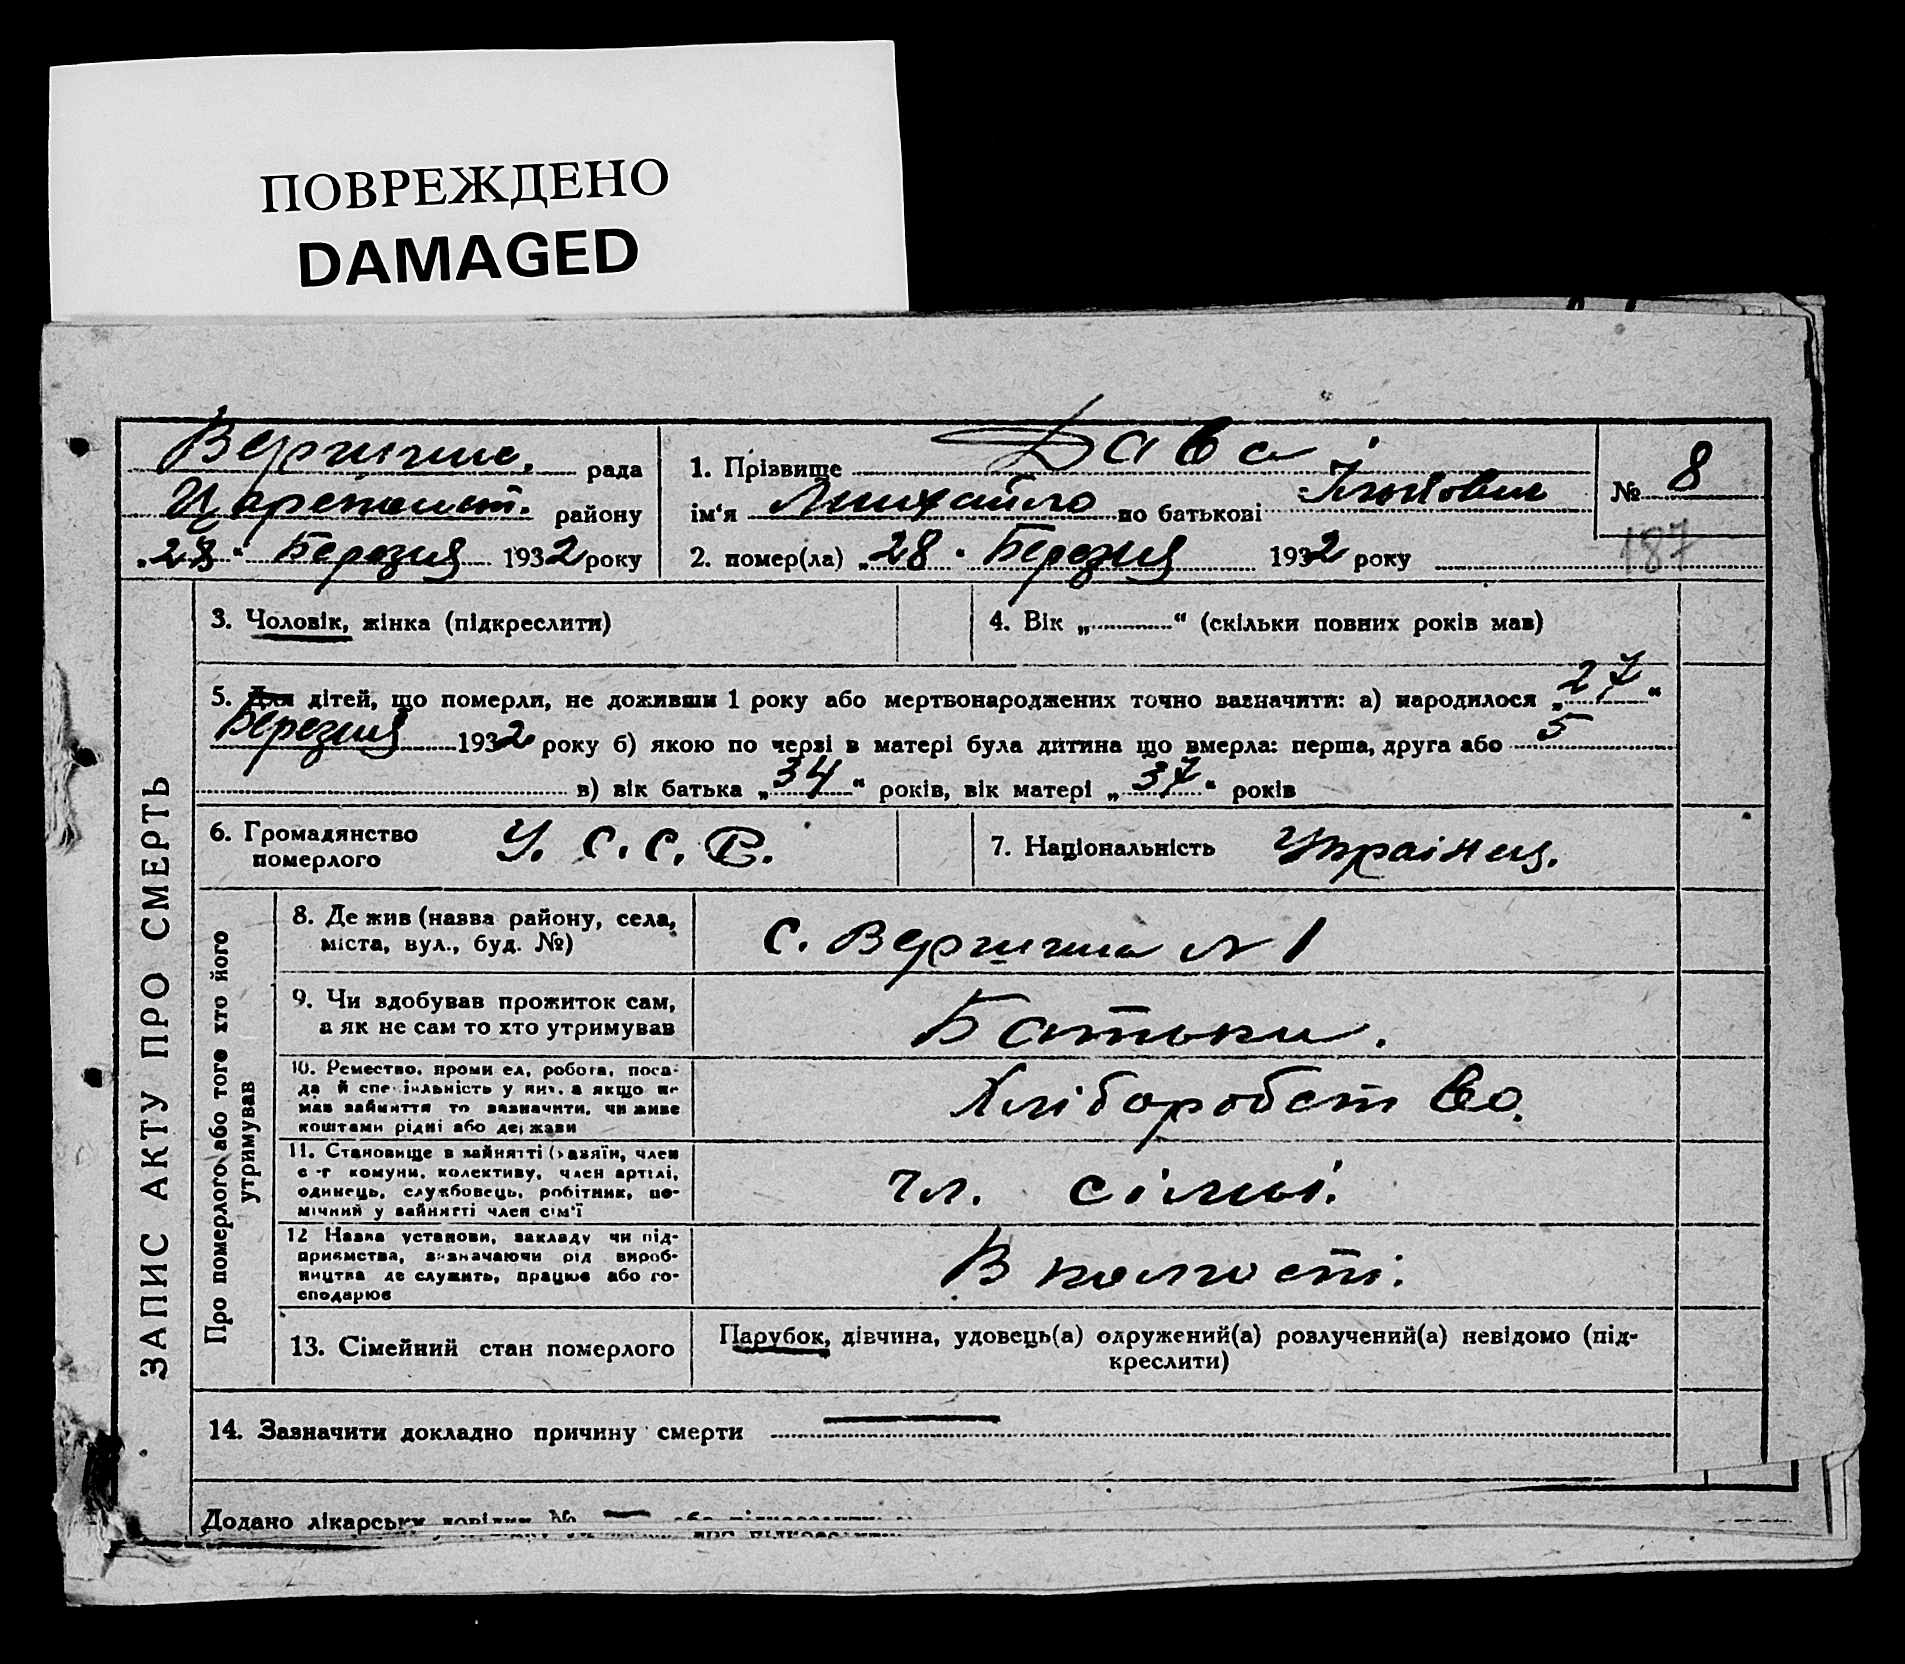 ПОВРЕЖДЕНО
DAMAGED
рада
району
„28“ Березня 1932 року
1. Прізвище Дава
ім'я Михайло по батькові Ількович
2. помер(ла) „28“ Березня 1932 року
№ 8
187
3. Чоловік, жінка (підкреслити)
4. Вік „ “ (скільки повних років мав)
5. Для дітей, що померли, не доживши 1 року або мертвонароджених точно зазначити: а) народилося „27“
Березня 1932 року б) якою по черзі в матері була дитина що вмерла: перша, друга або 5
в) вік батька „34“ років, вік матері „37“ років
6. Громадянство
померлого
У. С. С. Р.
7. Національність Українец.
8. Де жив (назва району, села,
міста, вул., буд. №)
с. № 1
9. Чи здобував прожиток сам,
а як не сам то хто утримував
Батьки.
10. Ремество, промисел, робота, поса-
да й спеціяльність у них, а якщо не
мав зайняття то зазначити, чи живе
коштами рідні або держави
Хліборобство.
11. Становище в зайнятті (хазяїн, член
с-г комуни, колективу, член артілі,
одинець, службовець, робітник, по-
мічний у зайнятті член сім'ї
чл. сімьі.
12 Назва установи, закладу чи під-
приємства, визначаючи рід вироб-
ництва де служить, працює або го-
сподарює
В
13. Сімейний стан померлого
Парубок, дівчина, удовець(а) одружений(а) розлучений(а) невідомо (під-
креслити)
14. Зазначити докладно причину смерти —
Додано лікарську довідку № —
ЗАПИС АКТУ ПРО СМЕРТЬ
Про померлого або того хто його
утримував